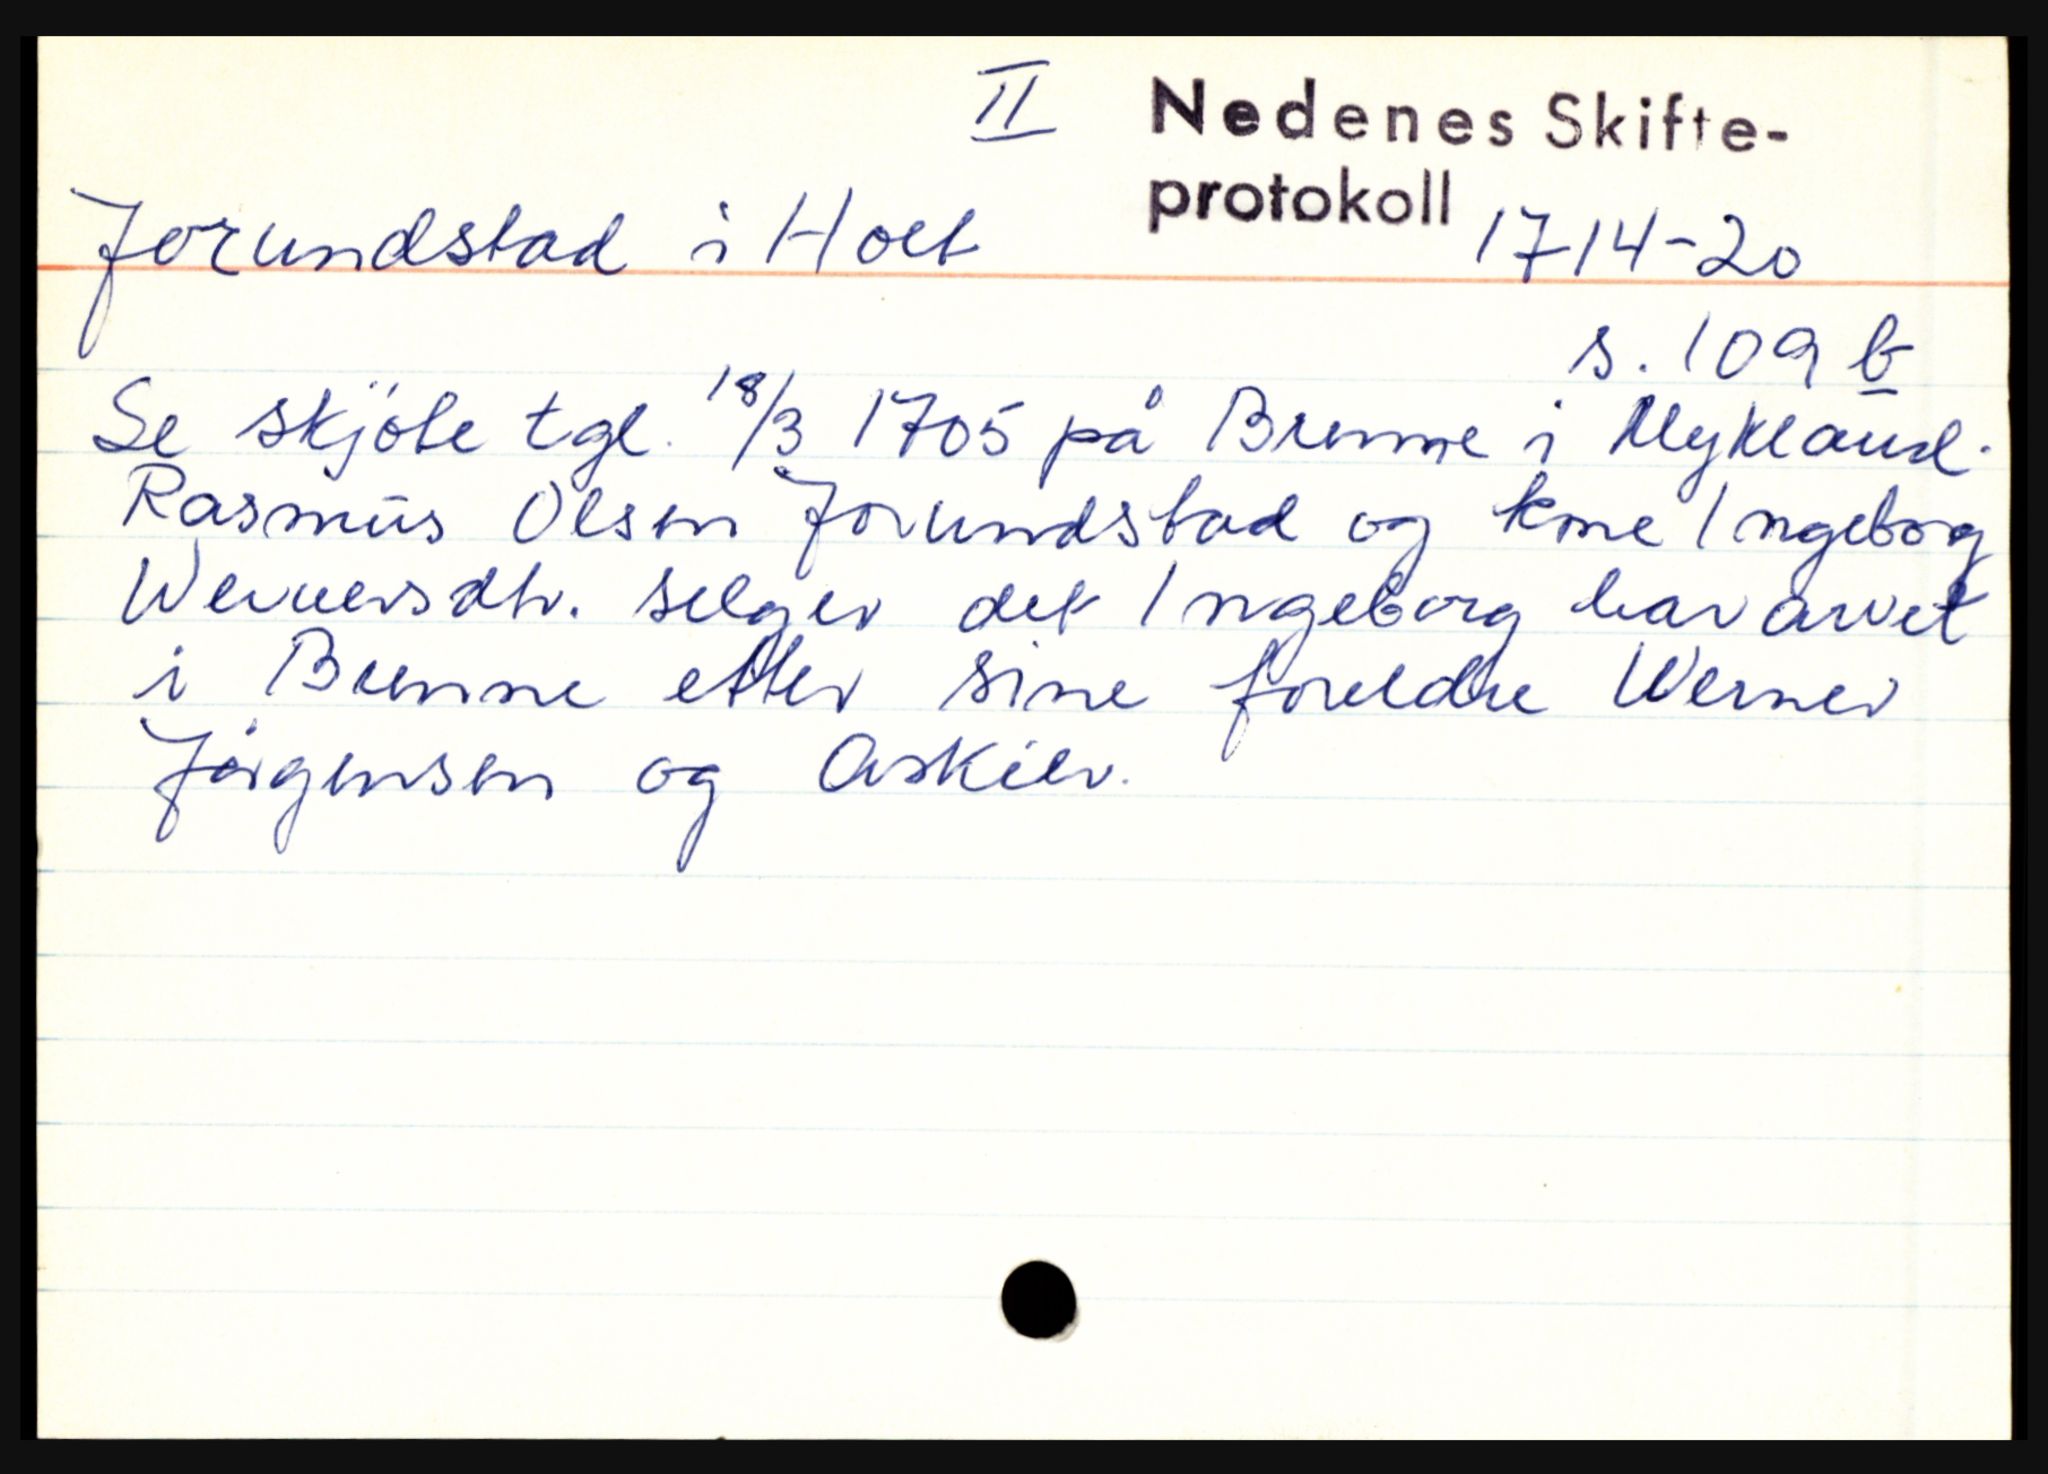 II Nedenes Skifte-
protokoll
Jorundstad i Holt 1714-20
s. 109 b
Se skjöte tgl. 18/3 1705 på Brenne i Mykland.
Rasmus Olsen Jorundstad og kone Ingeborg
Wernersdtr. selger det Ingeborg har arvet
i Brenne etter sine foreldre Werner
Jörgensen og Askier.